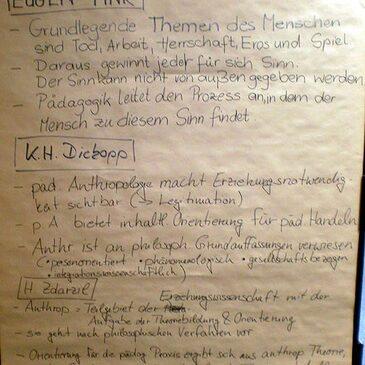 EUGEN FINK
- Grundlegende Themen des Menschen
sind Tod, Arbeit, Herrschaft, Eros und Spiel.
- Daraus gewinnt jeder für sich Sinn.
Der Sinn kann nicht von außen gegeben werden
- Pädagogik leitet den Prozess an, in dem der
Mensch zu diesem Sinn findet.
K.H. Dickopp
- päd. Anthropologie macht Erziehungsnotwendig-
keit sichtbar (→ Legitimation)
- p. A bietet inhaltl. Orientierung für päd Handeln
- Anthr ist an philosoph. Grundauffassungen verwiesen
(• personorientiert • phänomenologisch • gesellschaftsbezogen
• integrationswissenschaftlich)
H. Zdarzil
- Anthrop = Teilgebiet der Erziehungswissenschaft mit der
Aufgabe der Theoriebildung & Orientierung
- sie geht nach philosophischen Verfahren vor
- Orientierung für die pädag. Praxis ergibt sich aus anthrop Theorie,